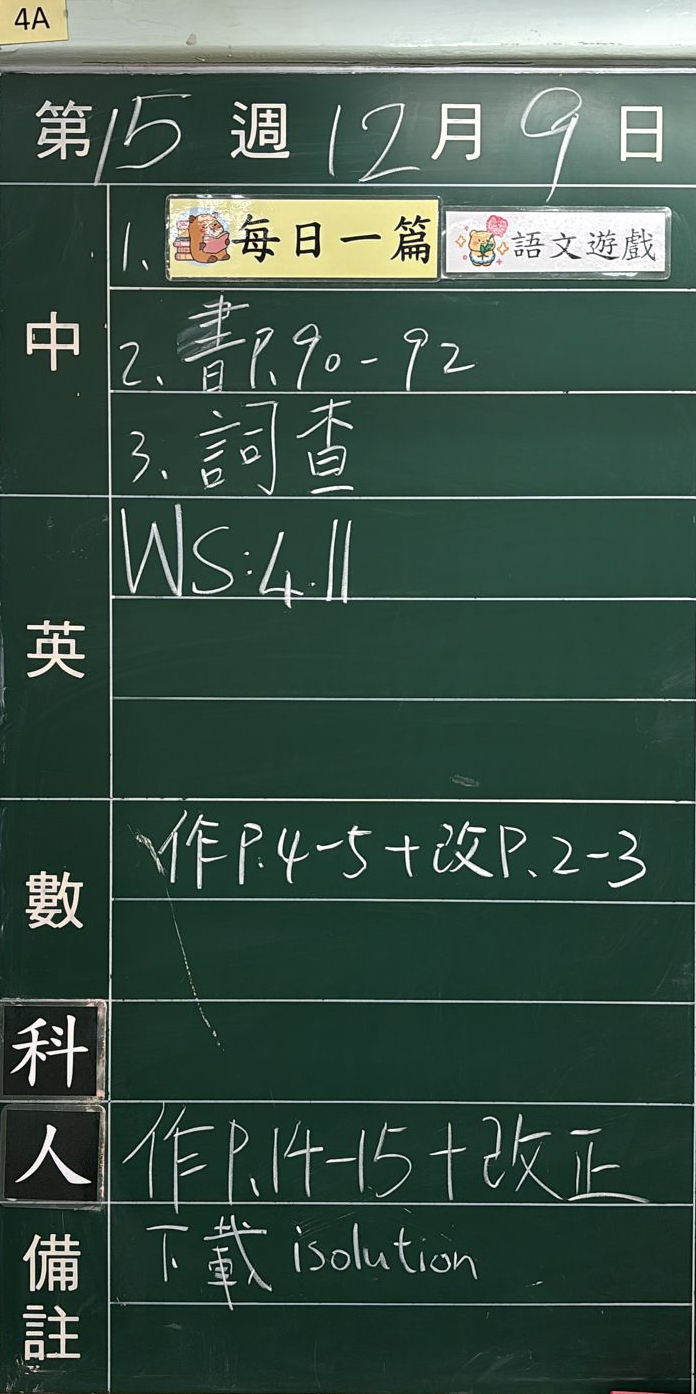 4A
第15週12月9日
中
1、每日一篇 語文遊戲
2、書P.90-92
3、詞查
英
WS:4.11
數
作P.4-5+改P.2-3
科
人
作P.14-15+改正
備註
下載 isolution